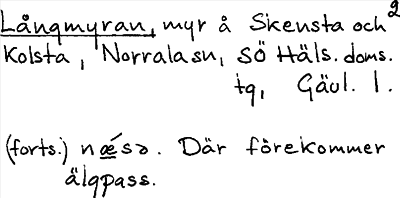 Långmyran, myr å Skensta och 2
Kolsta, Norrala sn, SÖ Häls. doms.
tg, Gävl. l.
(forts.) næ´sə. Där förekommer
älgpass.